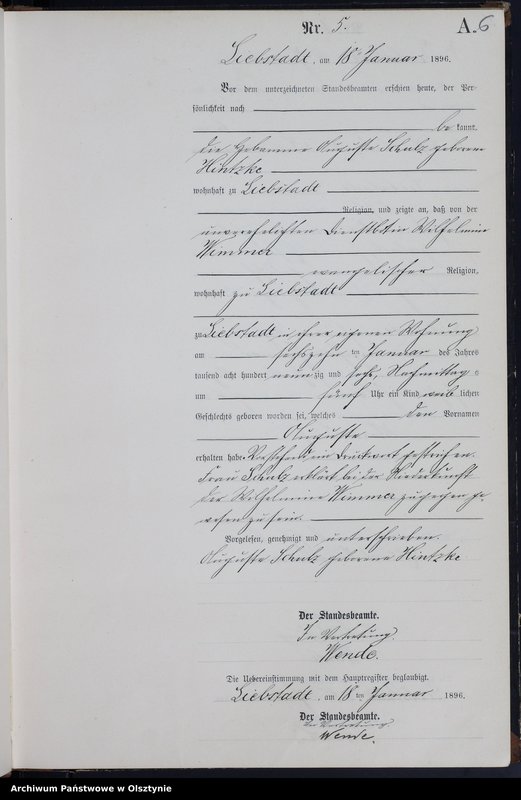 Nr. 5.
A. 6
Liebstadt, am 18 Januar 1896.
Vor dem unterzeichneten Standesbeamten erschien heute, der Per-
sönlichkeit nach
be kannt,
die Hebamme Auguste Schulz geborene
Hintzke
wohnhaft zu Liebstadt
Religion, und zeigte an, daß von der
unverehelichten Dienstbotin Wilhelmine
Wimmer
evangelischer Religion,
wohnhaft zu Liebstadt
zu Liebstadt in ihrer eigenen Wohnung
am sechszehn ten Januar des Jahres
tausend acht hundert neunzig und sechs, Nachmittags
um fünf Uhr ein Kind weib lichen
Geschlechts geboren worden sei, welches den Vornamen
Auguste
erhalten habe. Vorstehend ein Druckwort gestrichen.
Frau Schulz erklärt bei der Niederkunft
der Wilhelmine Wimmer zugegen ge-
wesen zu sein.
Vorgelesen, genehmigt und unterschrieben.
Auguste Schulz geborene Hintzke
Der Standesbeamte.
In Vertretung.
Wende.
Die Uebereinstimmung mit dem Hauptregister beglaubigt.
Liebstadt, am 18 ten Januar 1896.
Der Standesbeamte.
In Vertretung
Wende.
Archiwum Państwowe w Olsztynie